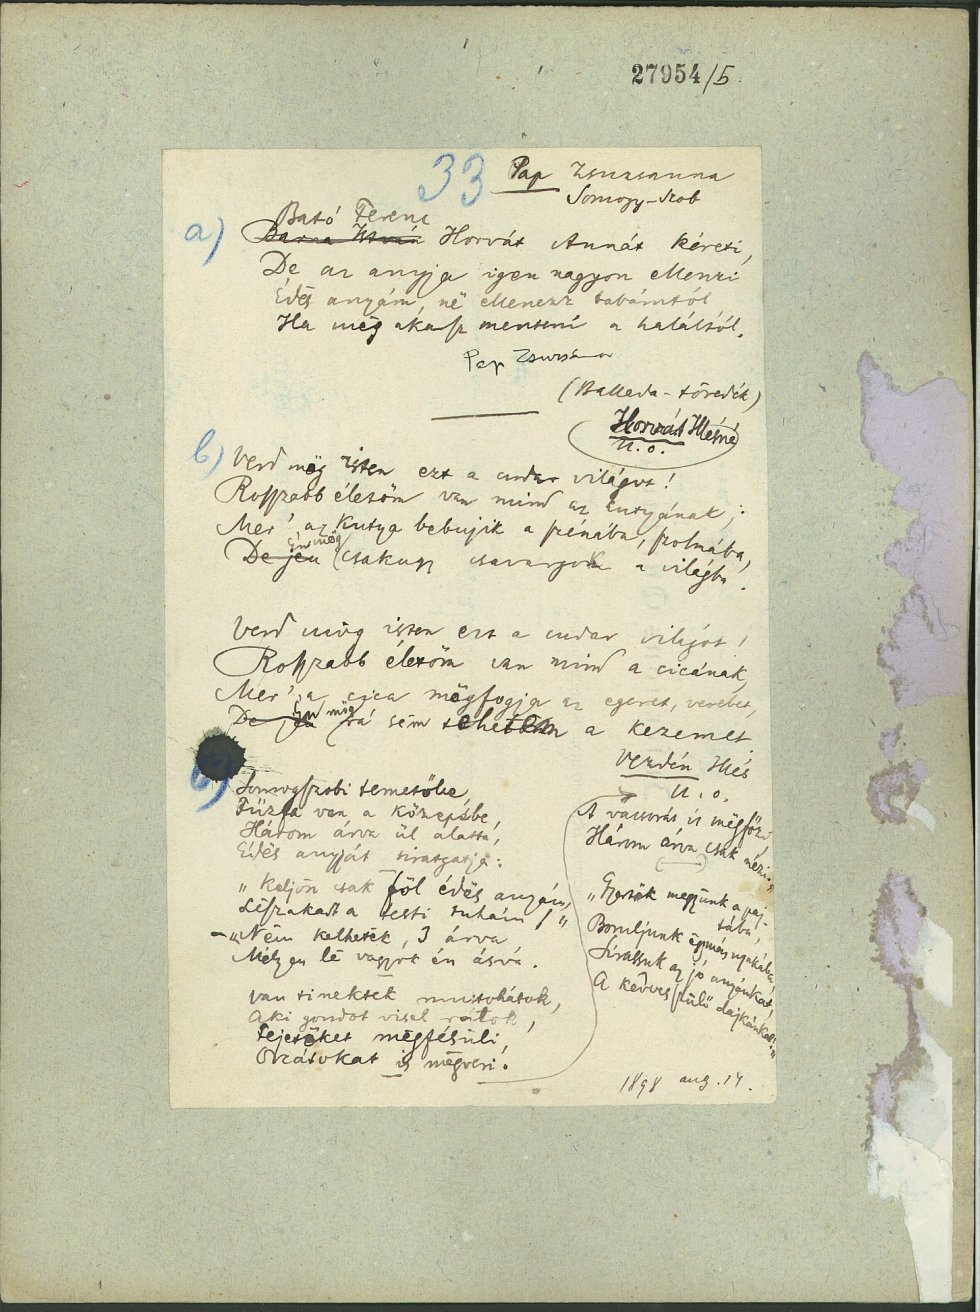 27954/5.
33
Pap Zsuzsanna
Somogy-Szob
a)
Bató Ferenc
Barna István Horvát Annát kéreti,
De az anyja igen nagyon ellenzi
Édés anyám, në ellenezz babámtól
Ha mëg akarsz menteni a haláltól.
Pap Zsuzsánna
(Ballada-töredék)
Horvát Illésné
U. o.
b)
Verd mëg isten ezt a cudar világot!
Rosszabb életöm van mind az kutyának;
Mer' az kutya bebujik a pénába, szolnába,
Én mëg
De jën csakugy csavargok a világba!
Verd mëg isten ezt a cudar világot!
Rosszabb életöm van mind a cicának,
Mer' a cica mëgfogja az egeret, verebet,
Én mëg
De jën rá sëm tehetëm a kezemet.
Verdén Illés
U. o.
c)
Somogyszobi temetőbe,
Füzfa van a közepébe,
Három árva ül alatta,
Édés anyját siratgatja:
„Keljön csak föl édës anyám,
Lëszakadt a testi ruhám!"
– „Nëm kelhetëk, 3 árva,
Mélyen lë vagyok én ásva.
Van tinektëk mustohátok,
Aki gondot visel rátok,
Fejetëket mëgfésüli,
Orcátokat is mëgveri.
A vacsorát is mëgfőzi,
Három árva csak nézi."
„Gyertök menjünk a paj-
tába,
Boruljunk ëgymás nyakába,
Sirassuk az jó anyánkat,
A kedves szülő dajkánkat!"
1898 aug. 14.